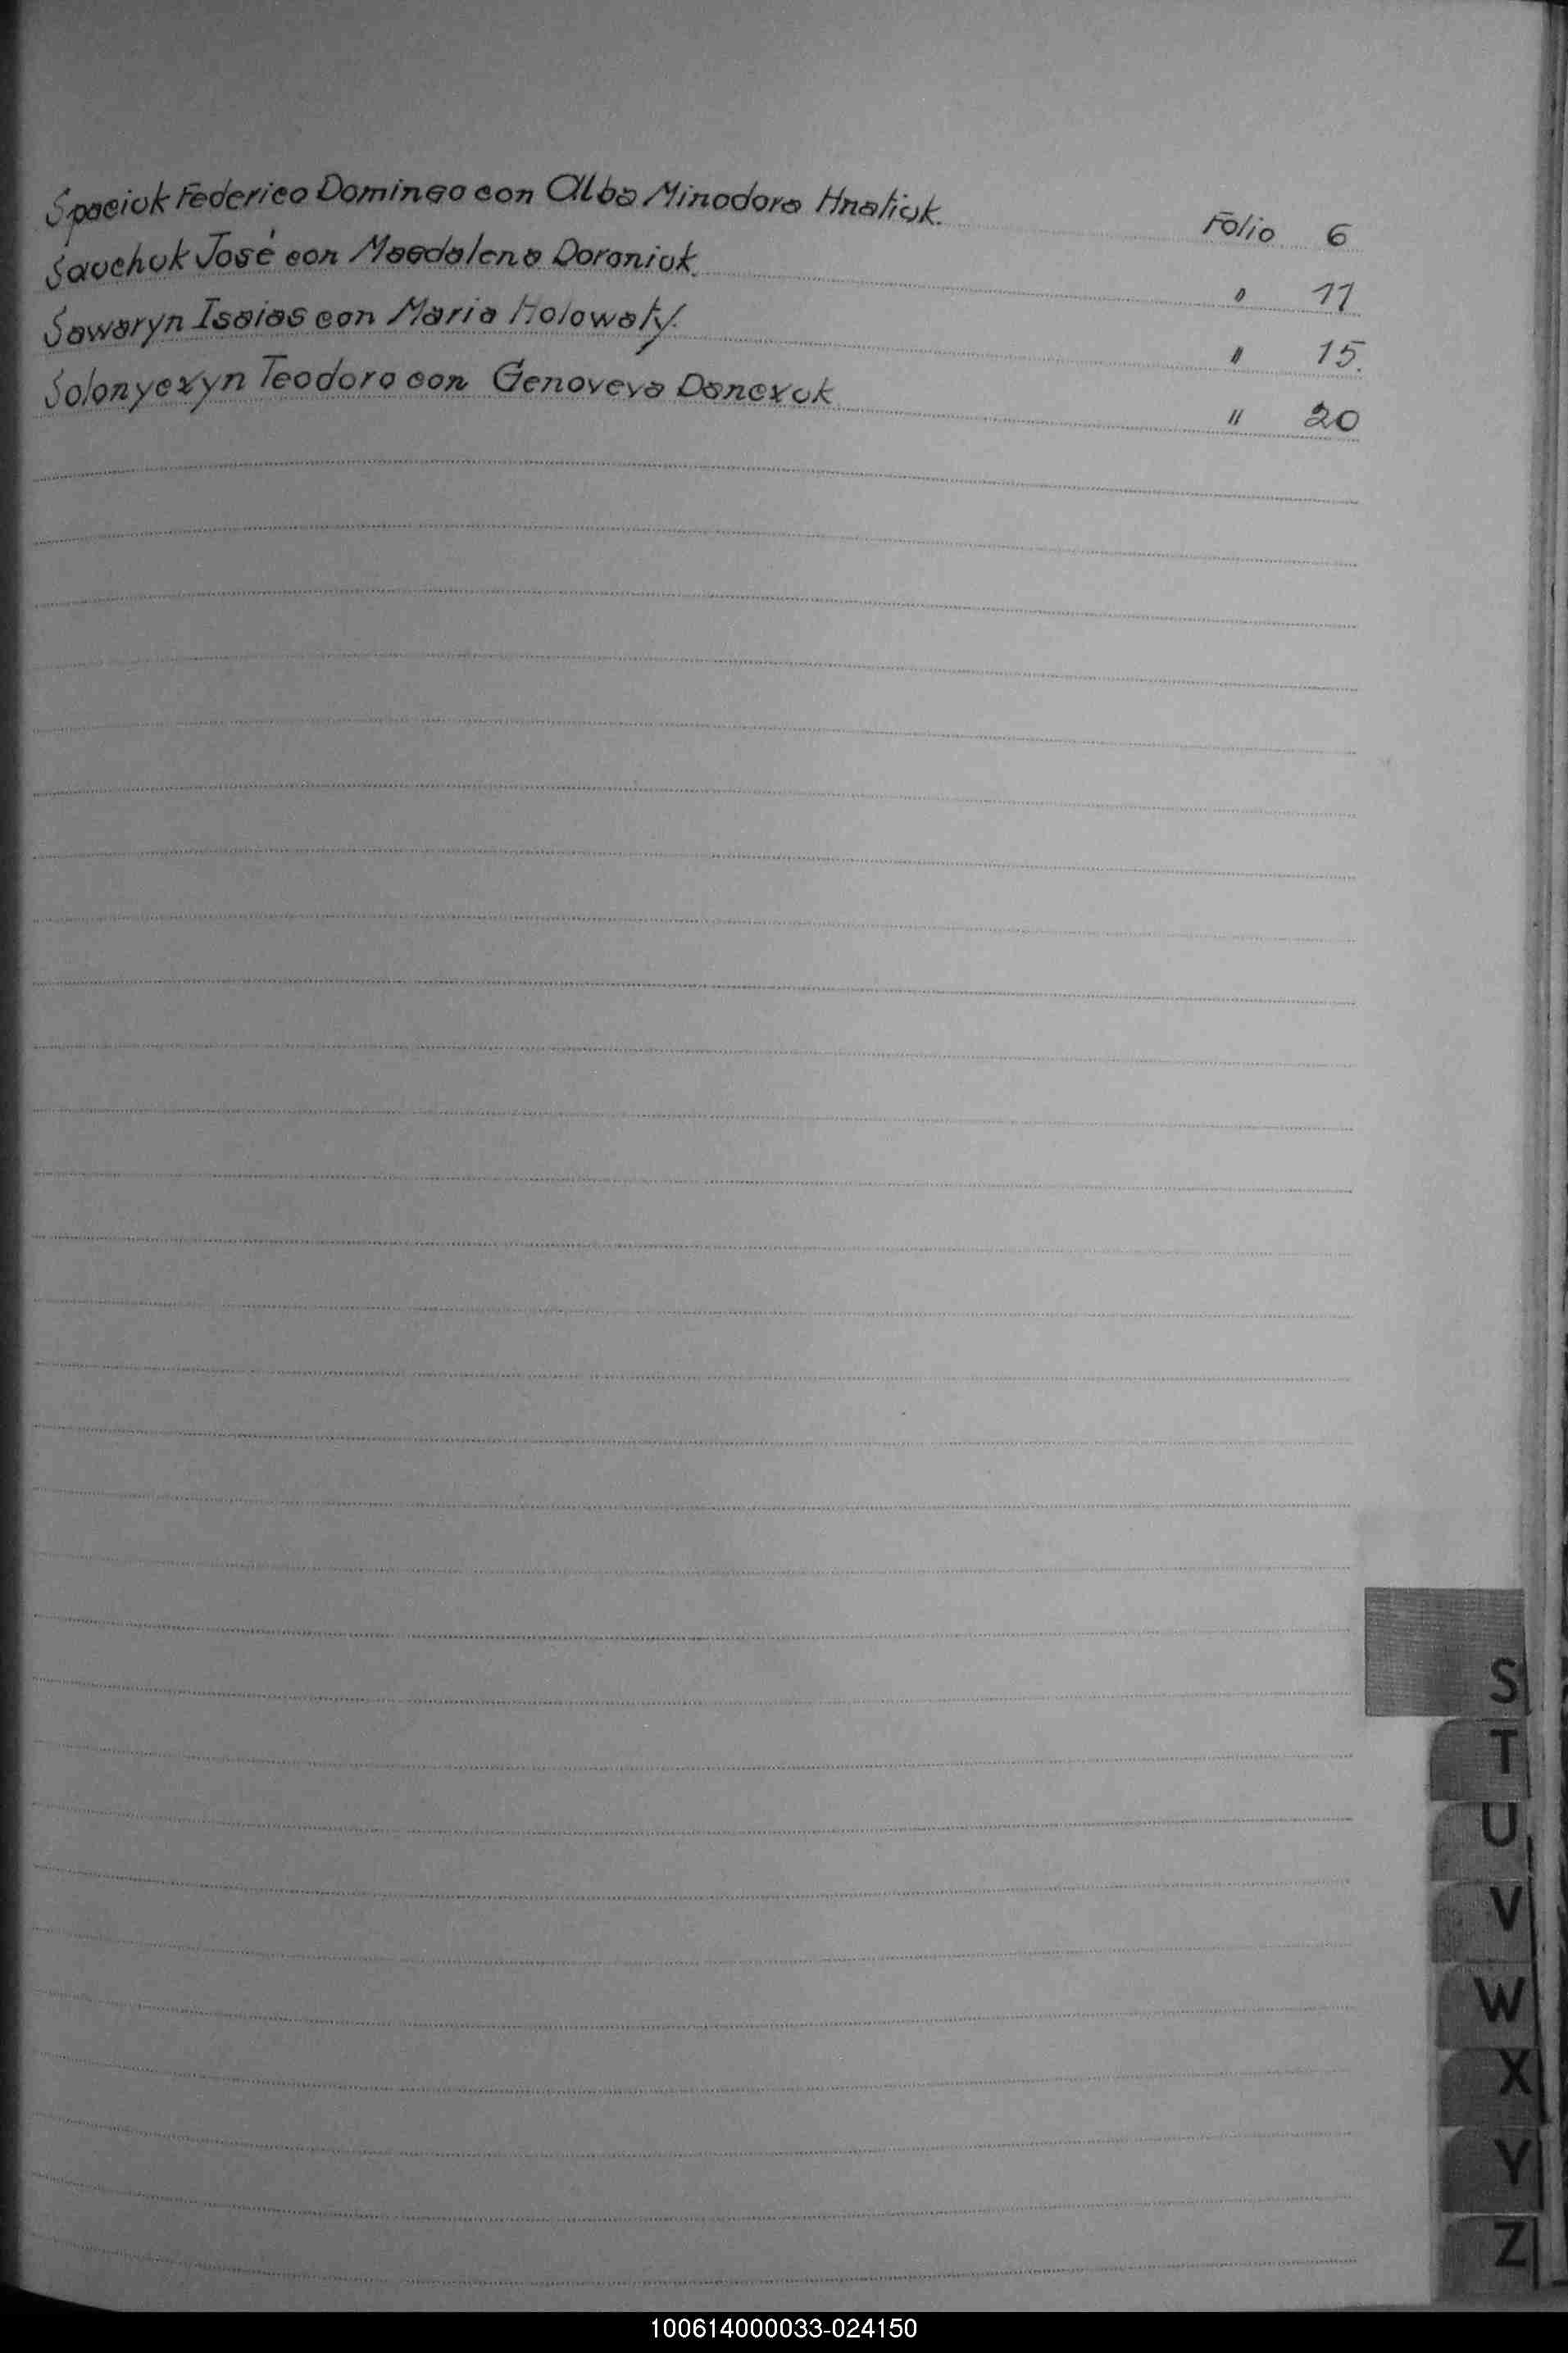 Spaciuk Federico Domingo con Alba Minodora Hnatiuk. Folio 6
Sauchuk José con Magdalena Doroniuk. " 11
Sawaryn Isaias con Maria Holowaty. " 15.
Solonyexyn Teodoro con Genoveva Danexuk " 20
S
T
U
V
W
X
Y
Z
100614000033-024150